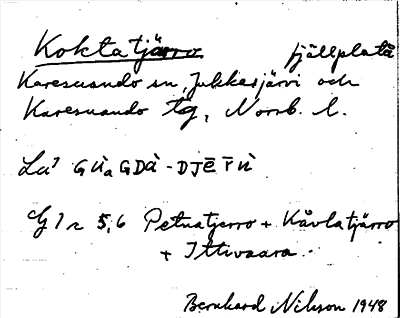 Koktatjärro fjällplatå
Karesuando sn, Jukkasjärvi och
Karesuando tg, Norrb. l.
La'
Gl r 5,6 Petnatjerro + Kåvlatjärro
+ Ittivaara.
Bernhard Nilsson 1948